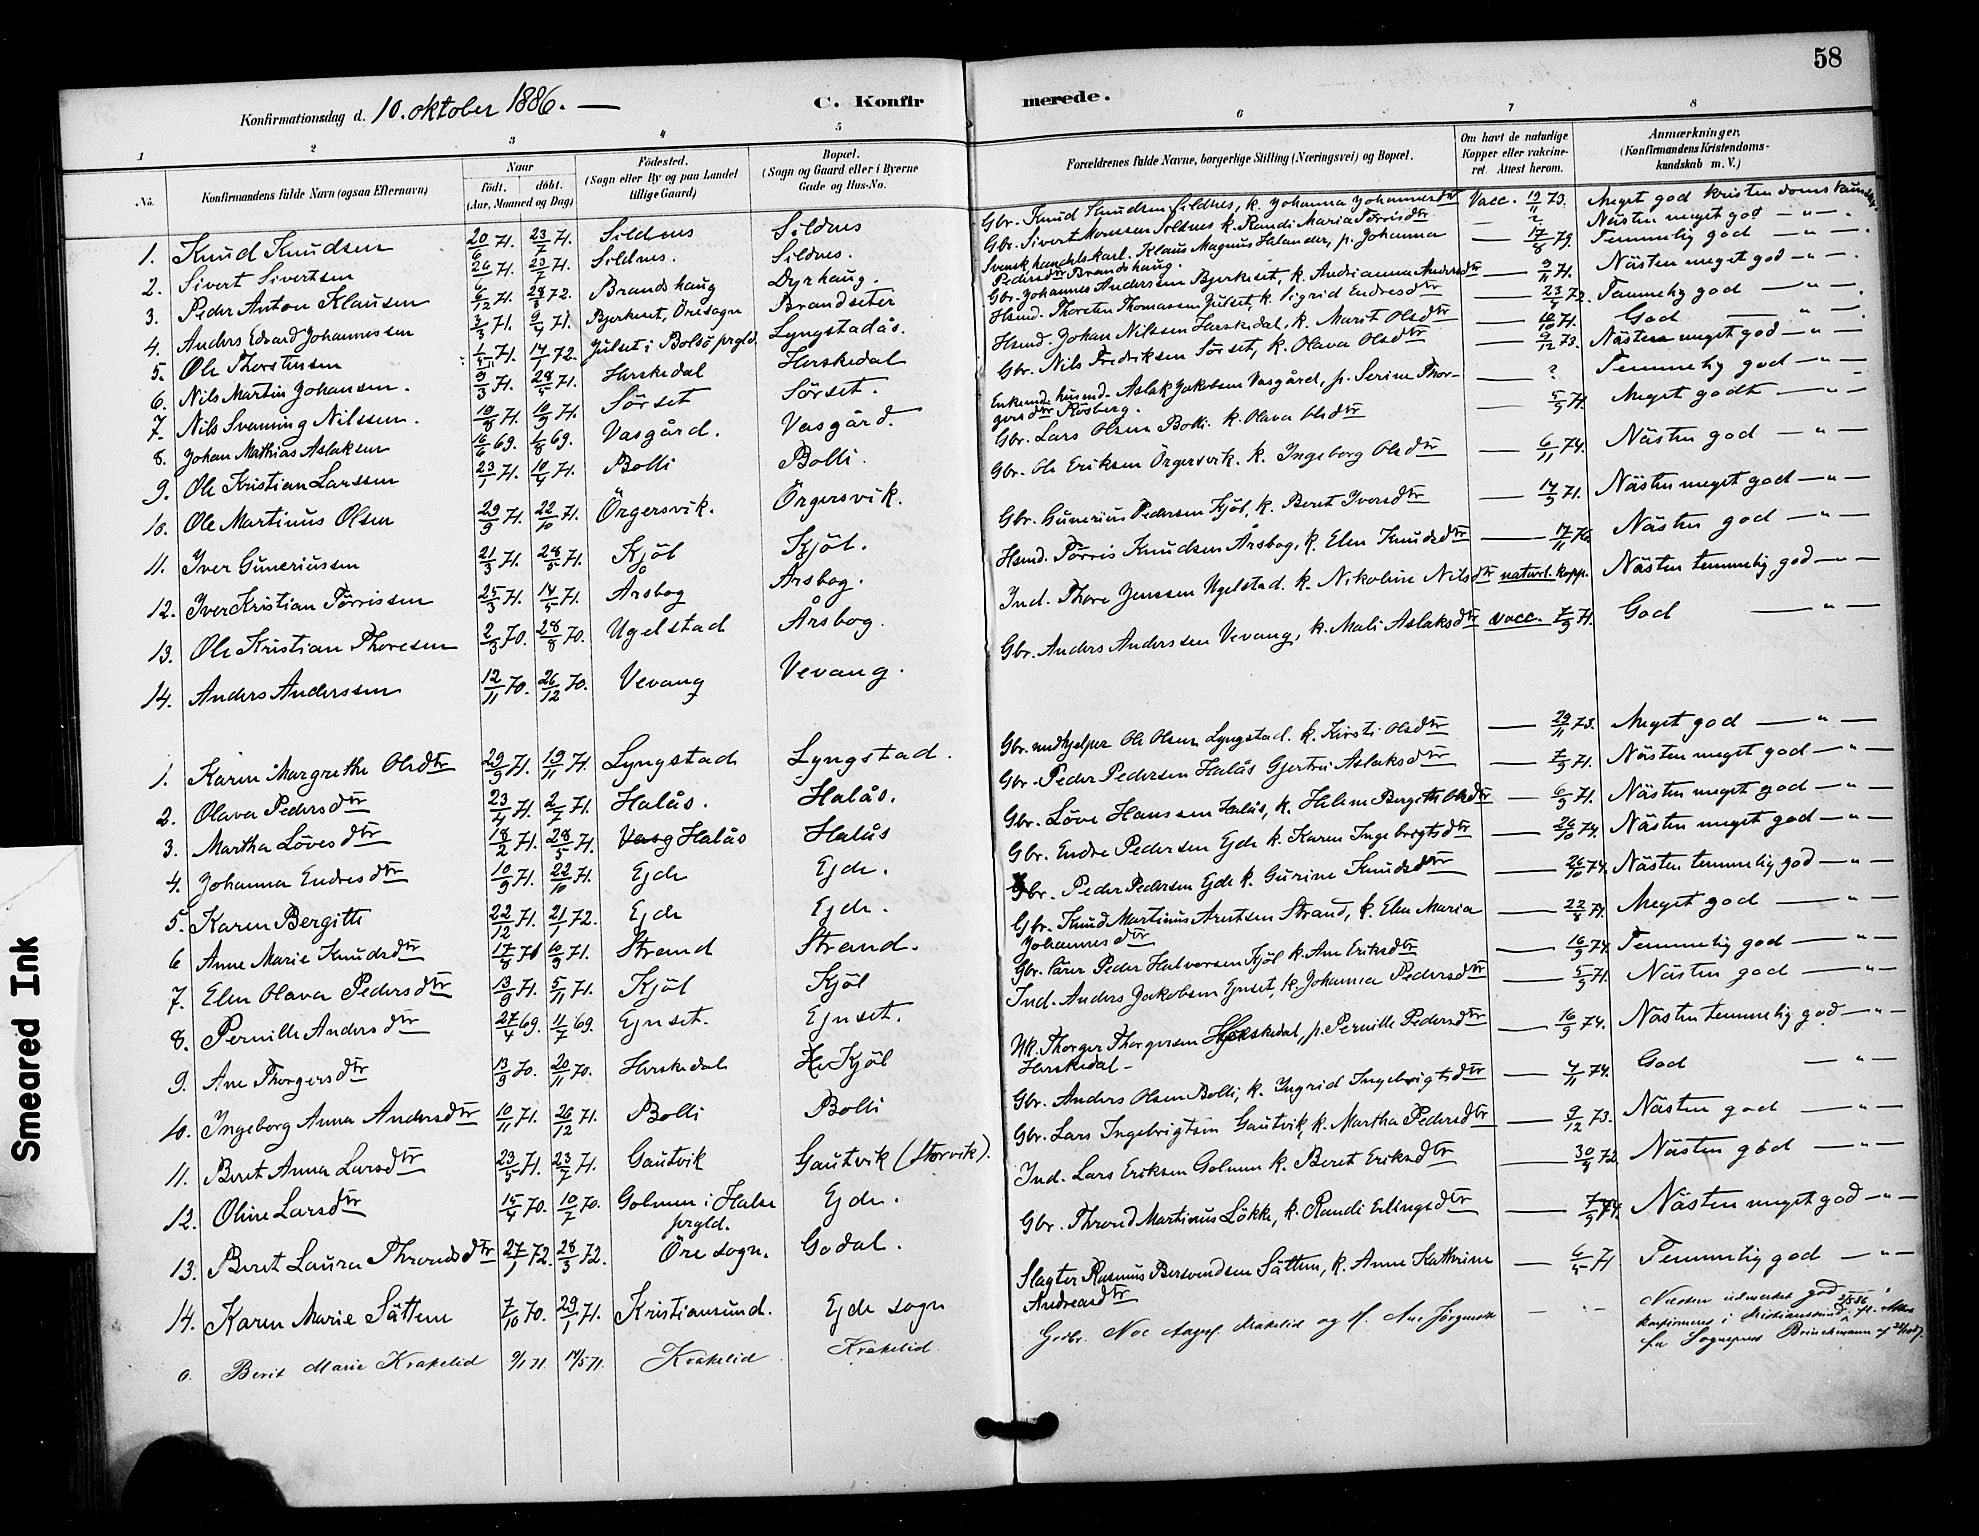 58
Konfirmationsdag d. 10. oktober 1886. —
C. Konfirmerede.
1 2 3 4 5 6 7 8
No. Konfirmandens fulde Navn (ogsaa Efternavn) Naar født. døbt. (Aar, Maaned og Dag) Födested. (Sogn eller By og paa Landet tillige Gaard) Bopæl. (Sogn og Gaard eller i Byerne Gade og Hus-No. Forældrenes fulde Navne, borgerlige Stilling (Næringsvei) og Bopæl. Om havt de naturlige Kopper eller vakcineret. Attest herom. Anmærkninger, (Konfirmandens Kristendomskundskab m. V.)
1. Knud Knudsen 20/6 71. 23/7 71. Sildnes Sildnes Gbr. Knud Knudsen Sildnes, k. Johanna Johannesdtr Vacc. 19/11 73. Meget god kristendomskundsk.
2. Sivert Sivertsen 26/6 71. 23/7 71. Sildnes. Sildnes. Gbr. Sivert Monssen Sildnes k. Randi Maria Tørrisdtr Nästen meget god — " —
3. Peder Anton Klausen 6/12 71. 28/3 72. Brandshaug Dyrhaug. Svensk handelskarl. Klaus Magnus Helander, p. Johanna Pedersdtr Brandshaug. — 17/8 79. Temmelig god — " —
4. Anders Edvard Johannessen 3/3 71. 9/4 71. Bjerkeset, Öresogn Brandseter Gbr. Johannes Anderssen Bjerkeset, k. Andrianna Andersdtr — 9/11 71. Nästen meget god — " —
5. Ole Thorstensen 71. 14/1 72. Julset i Bolsö prgld. Lyngstadås. Husmd. Thorsten Thomassen Julset, k. Sigrid Endresdtr — 23/5 72. Temmelig god — " —
6. Nils Martin Johansen. 9/3 71. 28/5 71. Herskedal Herskedal Husmd. Johan Nilssen Herskedal, k. Marit Olsdtr — 10/10 71. God — " —
7. Nils Svenning Nilssen. 10/8 71. 10/9 71. Sörset Sörset. Gbr. Nils Fredriksen Sörset, k. Olava Olsdtr — 9/12 73. Nästen meget god — " —
8. Johan Mathias Aslaksen 16/6 69. 1/8 69. Vasgård. Vasgård. Enkemd. husmd. Aslak Jakobsen Vasgård, p. Serine Thorgersdtr Rösberg. — ? Temmelig god — " —
9. Ole Kristian Larssen 23/1 71. 10/4 71. Bolli Bolli. Gbr. Lars Olsen Bolli. k. Olava Olsdtr — 5/9 71. Meget godt — " —
10. Ole Martinus Olsen 29/9 71. 22/10 71. Örgersvik. Örgersvik. Gbr. Ole Eriksen Örgersvik. k. Ingeborg Olsdtr — 6/11 74. Nästen god — " —
11. Iver Guneriussen 21/3 71. 28/5 71. Kjöl Kjöl. Gbr. Gunerius Pedersen Kjöl, k. Beret Iversdtr — 17/9 71. Nästen meget god — " —
12. Iver Kristian Tørrissen 25/3 71. 14/5 71. Årsbog Årsbog. Husmd. Tørris Knudsen Årsbog, k. Elen Knudsdtr — 17/11 76. Nästen god — " —
13. Ole Kristian Thoresen 2/3 70. 28/8 70. Ugelstad Årsbog. Ind. Thore Jenssen Ugelstad. k. Nikoline Nilsdtr naturl. kopp. Nästen temmelig god — " —
14. Anders Anderssen 12/11 70. 26/12 70. Vevang Vevang. Gbr. Anders Anderssen Vevang, k. Mali Aslaksdtr vacc. 7/9 71. God — " —
1. Karen Margrethe Olsdtr 29/9 71. 19/11 71. Lyngstad Lyngstad. Gbr. medhjelper Ole Olsen Lyngstad. k. Kirsti Olsdtr — 29/11 73. Meget god — " —
2. Olava Pedersdtr 23/4 71. 2/7 71. Halås. Halås. Gbr. Peder Pedersen Halås Gjertru Aslaksdtr — 7/9 71. Nästen meget god — " —
3. Martha Lövesdtr 18/2 71. 28/5 71. Vasg Halås Halås Gbr. Löve Hanssen Halås, k. Helene Bergitte Olsdtr — 6/9 71. Nästen meget god — " —
4. Johanna Endresdtr 10/9 71. 22/10 71. Ejde Ejde. Gbr. Endre Pedersen Ejde k. Karen Ingebrigtsdtr — 26/10 74. Nästen meget god — " —
5. Karen Bergitte 22/12 71. 21/1 72. Ejde Ejde. Gbr. Peder Pedersen Ejde k. Gurine Knudsdtr — 26/10 74. Nästen temmelig god — " —
6 Anne Marie Knudsdtr 17/8 71 10/9 71. Strand Strand. Gbr. Knud Martinus Arntsen Strand, k. Elen Maria Johannesdtr — 22/8 71. Meget god — " —
7. Elen Olava Pedersdtr 13/9 71. 5/11 71. Kjöl Kjöl Gbr. lärer Peder Halvorsen Kjöl k. Ane Eriksdtr — 16/9 74. Temmelig god — " —
8. Pernille Andersdtr 27/4 69. 11/7 69. Ejnset. Ejnset. Ind. Anders Jakobsen Ejnset, k. Johanna Pedersdtr — 5/9 71. Nästen god — " —
9. Ane Thorgersdtr 13/9 70. 20/11 70. Herskedal Kjöl Uk. Thorger Thorgersen Herskedal, p. Pernille Pedersdtr Herskedal — 16/9 74. Nästen temmelig god — " —
10. Ingeborg Anna Andersdtr 10/11 71. 26/12 71. Bolli Bolli Gbr. Anders Olsen Bolli, k. Ingrid Ingebrigtsdtr — 4/11 74. God — " —
11. Beret Anna Larsdtr 23/5 71. 23/7 71. Gautvik Gautvik (Storvik). Gbr. Lars Ingebrigtsen Gautvik, k. Martha Pedersdtr — 9/12 73. Nästen god — " —
12. Oline Larsdtr 15/4 70. 10/7 70. Golmen i Halse prgld. Ejde. Ind. Lars Eriksen Golmen k. Beret Eriksdtr — 30/9 72. Nästen god — " —
13. Beret Laura Throndsdtr 27/1 72. 28/3 72. Öre sogn. Godal. Gbr. Thrond Martinus Lökke, k. Randi Erlingsdtr — 7/9 74. Nästen meget god — " —
14. Karen Marie Sättem 7/10 70. 29/1 71. Kristiansund. Ejde sogn Slagter Rasmus Bersvendsen Sättem, k. Anne Kathrine Andreasdtr — 6/5 71 Temmelig god — " —
0. Berit Marie Krakelid 9/1 71. 14/5 71. Krakelid Krakelid. Gedbr. Noe Krakelid og H. Ane Jörgensdtr — Næsten udmærket god konfirmeret i Kristiansund fl. Attest fra Sognepræst Brinchmann
Smeared Ink